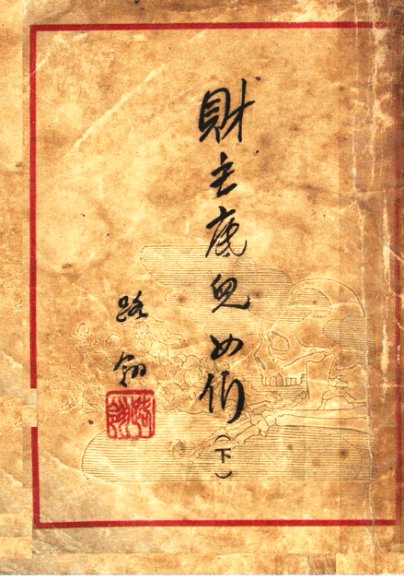 財主底兒女們
(下)
路翎